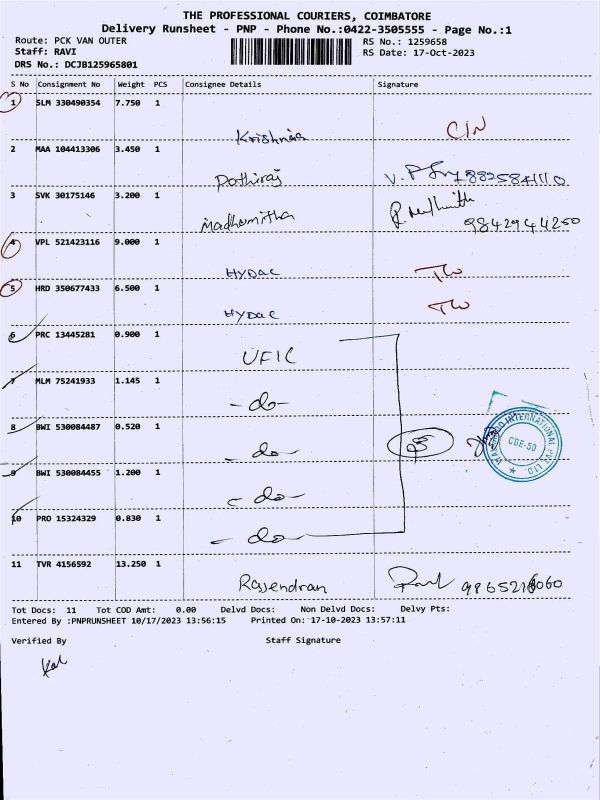 THE PROFESSIONAL COURIERS, COIMBATORE
Delivery Runsheet - PNP - Phone No.:0422-3505555 - Page No.:1
Route: PCK VAN OUTER RS No.: 1259658
Staff: RAVI RS Date: 17-Oct-2023
DRS No.: DCJB125965801
S No Consignment No Weight PCS Consignee Details Signature
1 SLM 330490354 7.750 1
Krishnais C/N
2 MAA 104413306 3.450 1
Pathiraj
3 SVK 30175146 3.200 1
Madhumitha 9842944250
4 VPL 521423116 9.000 1
HYDAC
5 HRD 350677433 6.500 1
HYDAC
6 PRC 13445281 0.900 1
UFIC
7 MLM 75241933 1.145 1
- do -
8 BWI 530084487 0.520 1
- do -
9 BWI 530084455 1.200 1
- do -
10 PRO 15324329 0.830 1
- do -
CBE-50
11 TVR 4156592 13.250 1
Rajendran
Tot Docs: 11 Tot COD Amt: 0.00 Delvd Docs: Non Delvd Docs: Delvy Pts:
Entered By :PNPRUNSHEET 10/17/2023 13:56:15 Printed On: 17-10-2023 13:57:11
Verified By Staff Signature